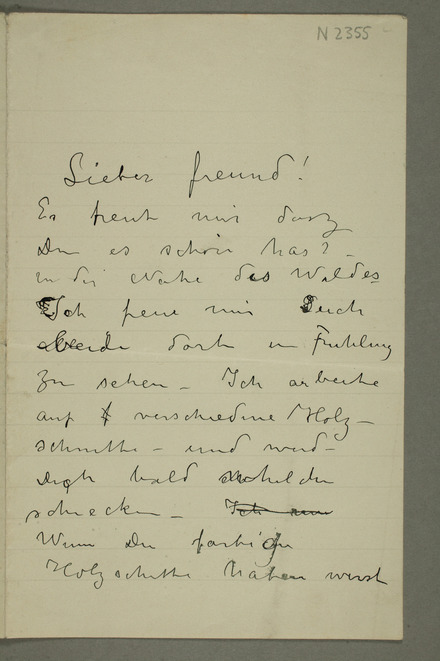 N 2355
Lieber freund!
Es freut mir dasz
Du es schön has? –
in die Nähe des Waldes
Ich freue mir Deuch
beide dort in Frühling
zu sehen – Ich arbeite
auf verschiedene Holz–
schnitte – und werd–
Digh bald
schecken – Ich
Wenn Du farbige
Holzschitte haben werst